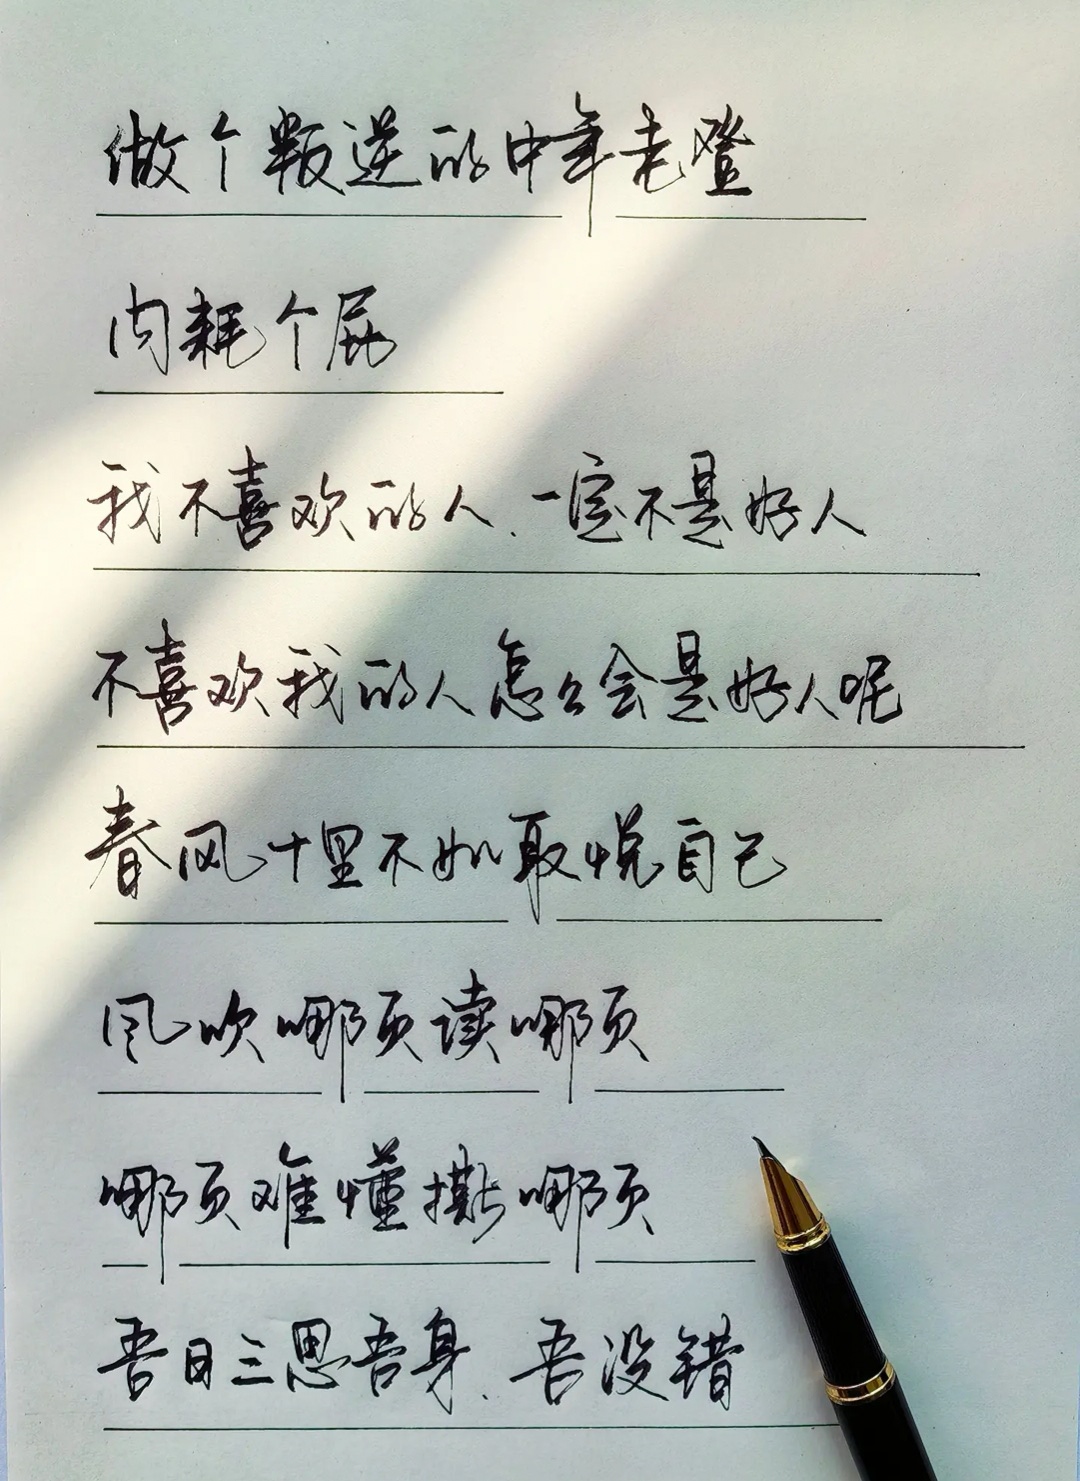 做个叛逆的中年老登
内耗个屁
我不喜欢的人、一定不是好人
不喜欢我的人怎么会是好人呢
春风十里不如取悦自己
风吹哪页读哪页
哪页难懂撕哪页
吾日三思吾身、吾没错